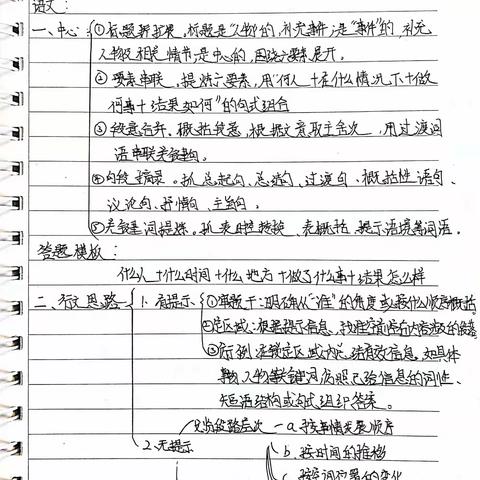 语文:
一、中心: ①标题郭扩展,标题是"人物"的,补充事件;是"事件"的,补充
人物及相关情节;是中心的,围绕六要素展开。
②要素串联,提炼六要素,用"何人+在什么情况下+做
何事+结果如何"的句式组合
③段意合并。概括段意,根据文章取主舍次,用过渡词
语串联关键句。
④句段摘录。抓总起句、总结句、过渡句、概括性语句、
议论句、抒情句、主旨句。
⑤关键词提炼。抓表时空转换、表概括、提示语境等词语。
答题模板:
什么人+什么时间+什么地方+做了什么事+结果怎么样
二、行文思路 1.有提示 ①审题干:明确从"谁"的角度或按什么顺序概括
②定区域:根据提示信息,找准空前后有内容涉及的段落
③筛例:在锁定区域内,筛有效信息,如具体
事物、人物等关键词,仿照已给信息的词性、
短语结构或句式组织答案。
2.无提示 段落层次 a.按事情发展顺序
b.按时间的推移
c.按空间位置的变化